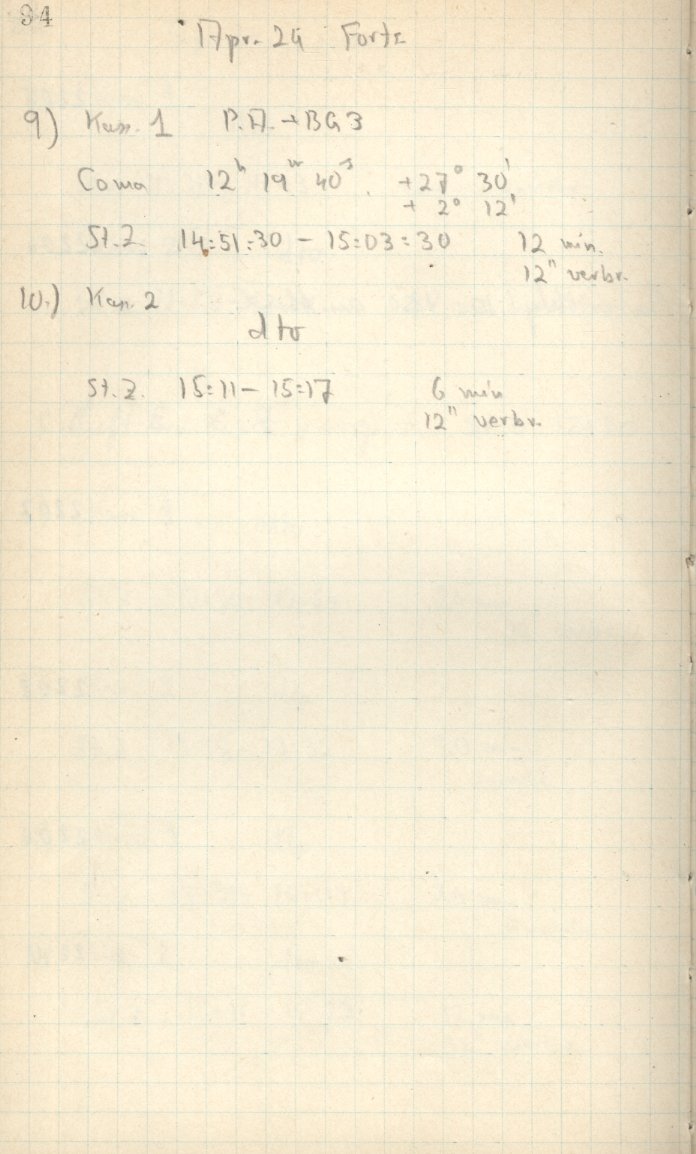 94
Apr. 24 Forts
9) Kass. 1 P.A. → BG 3
Coma 12h 19m 40s. +27° 30'
+ 2° 12'
St.Z. 14:51:30 — 15:03:30 12 min.
12" verbr.
10.) Kass. 2
dto
St.Z. 15:11 — 15:17 6 min
12" verbr.